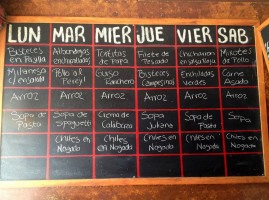 LUN MAR MIER JUE VIER SAB
Bisteces en Pasilla
Albondigas enchipotladas
Tortitas de Papa
Filete de Pescado
Chicharron en salsa Roja
Mixiotes de Pollo
Milanesa c/ ensalada
Pollo al
Guiso Ranchero
Bisteces Campesinos
Enchiladas Verdes
Carne Asada
Arroz Arroz Arroz Arroz Arroz Arroz
Sopa de Pasta
Sopa de Spaguetti
Crema de Calabaza
Sopa Juliana
Sopa de Pasta
Sopa
Chiles en Nogada
Chiles en Nogada
Chiles en Nogada
Chiles en Nogada
Chiles en Nogada